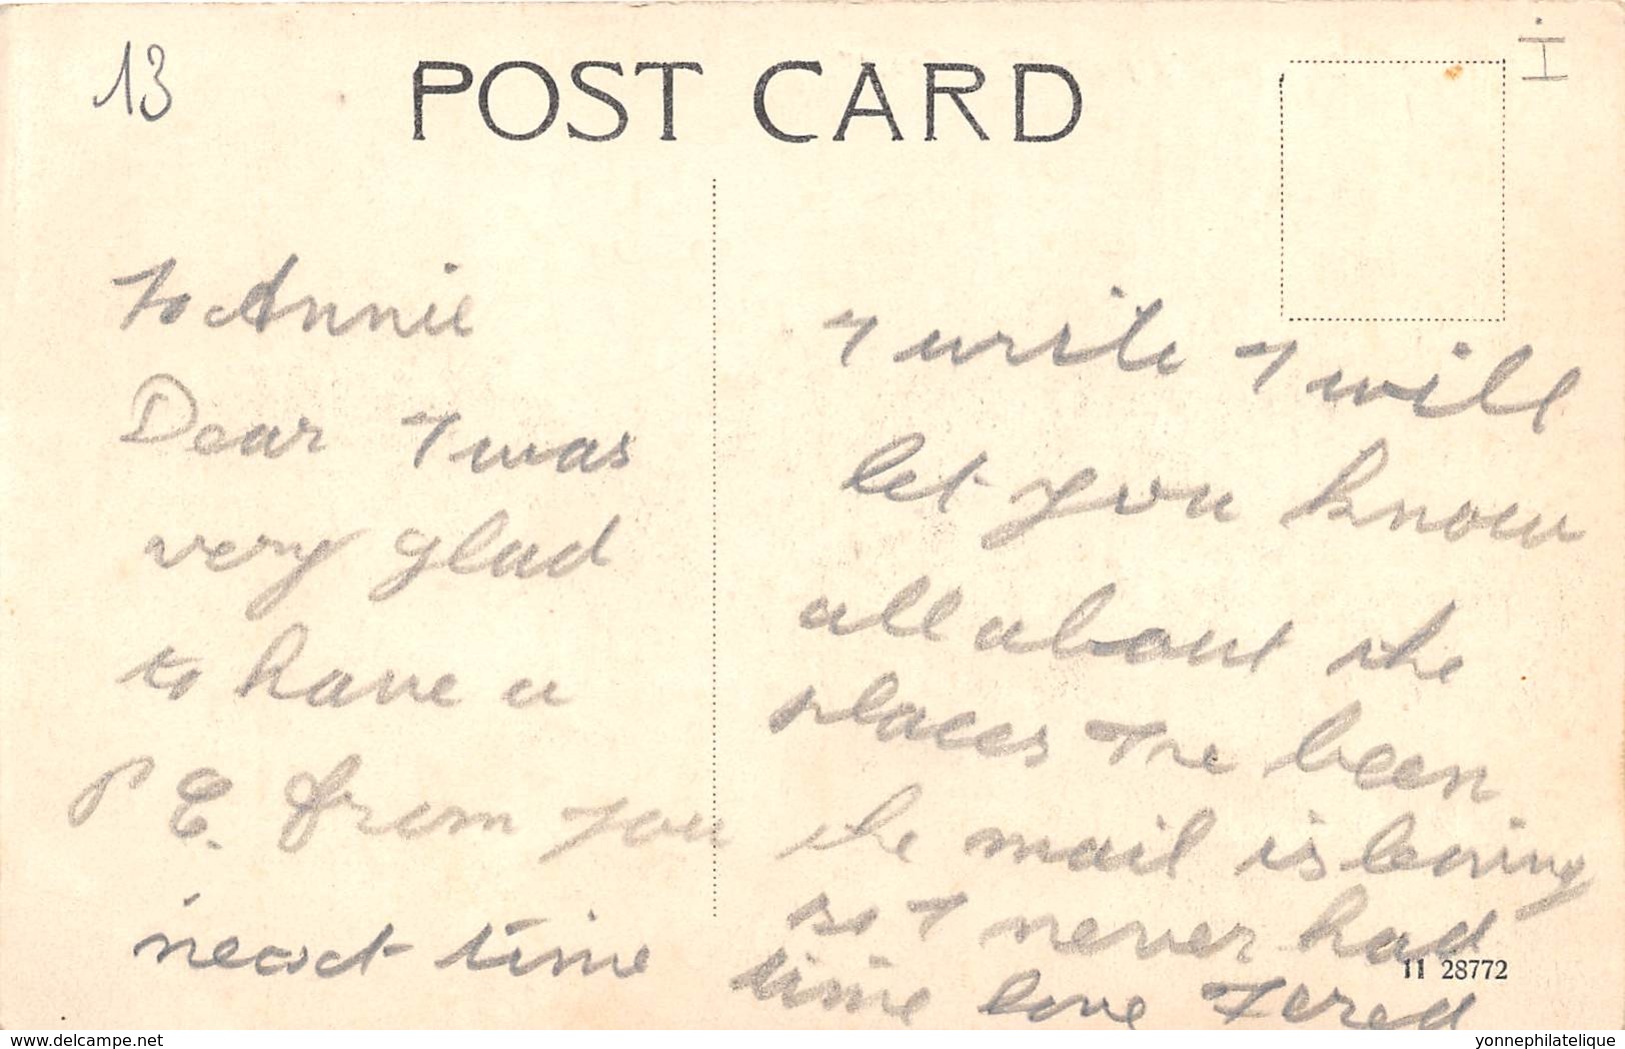 13
POST CARD
I
To Annie
Dear I was
very glad
to have a
P C. from you
next time
I write I will
let you know
all about the
places Ive been
the mail is leaving
so I never had
time love Fred
11 28772
www.delcampe.net
yonnephilatelique